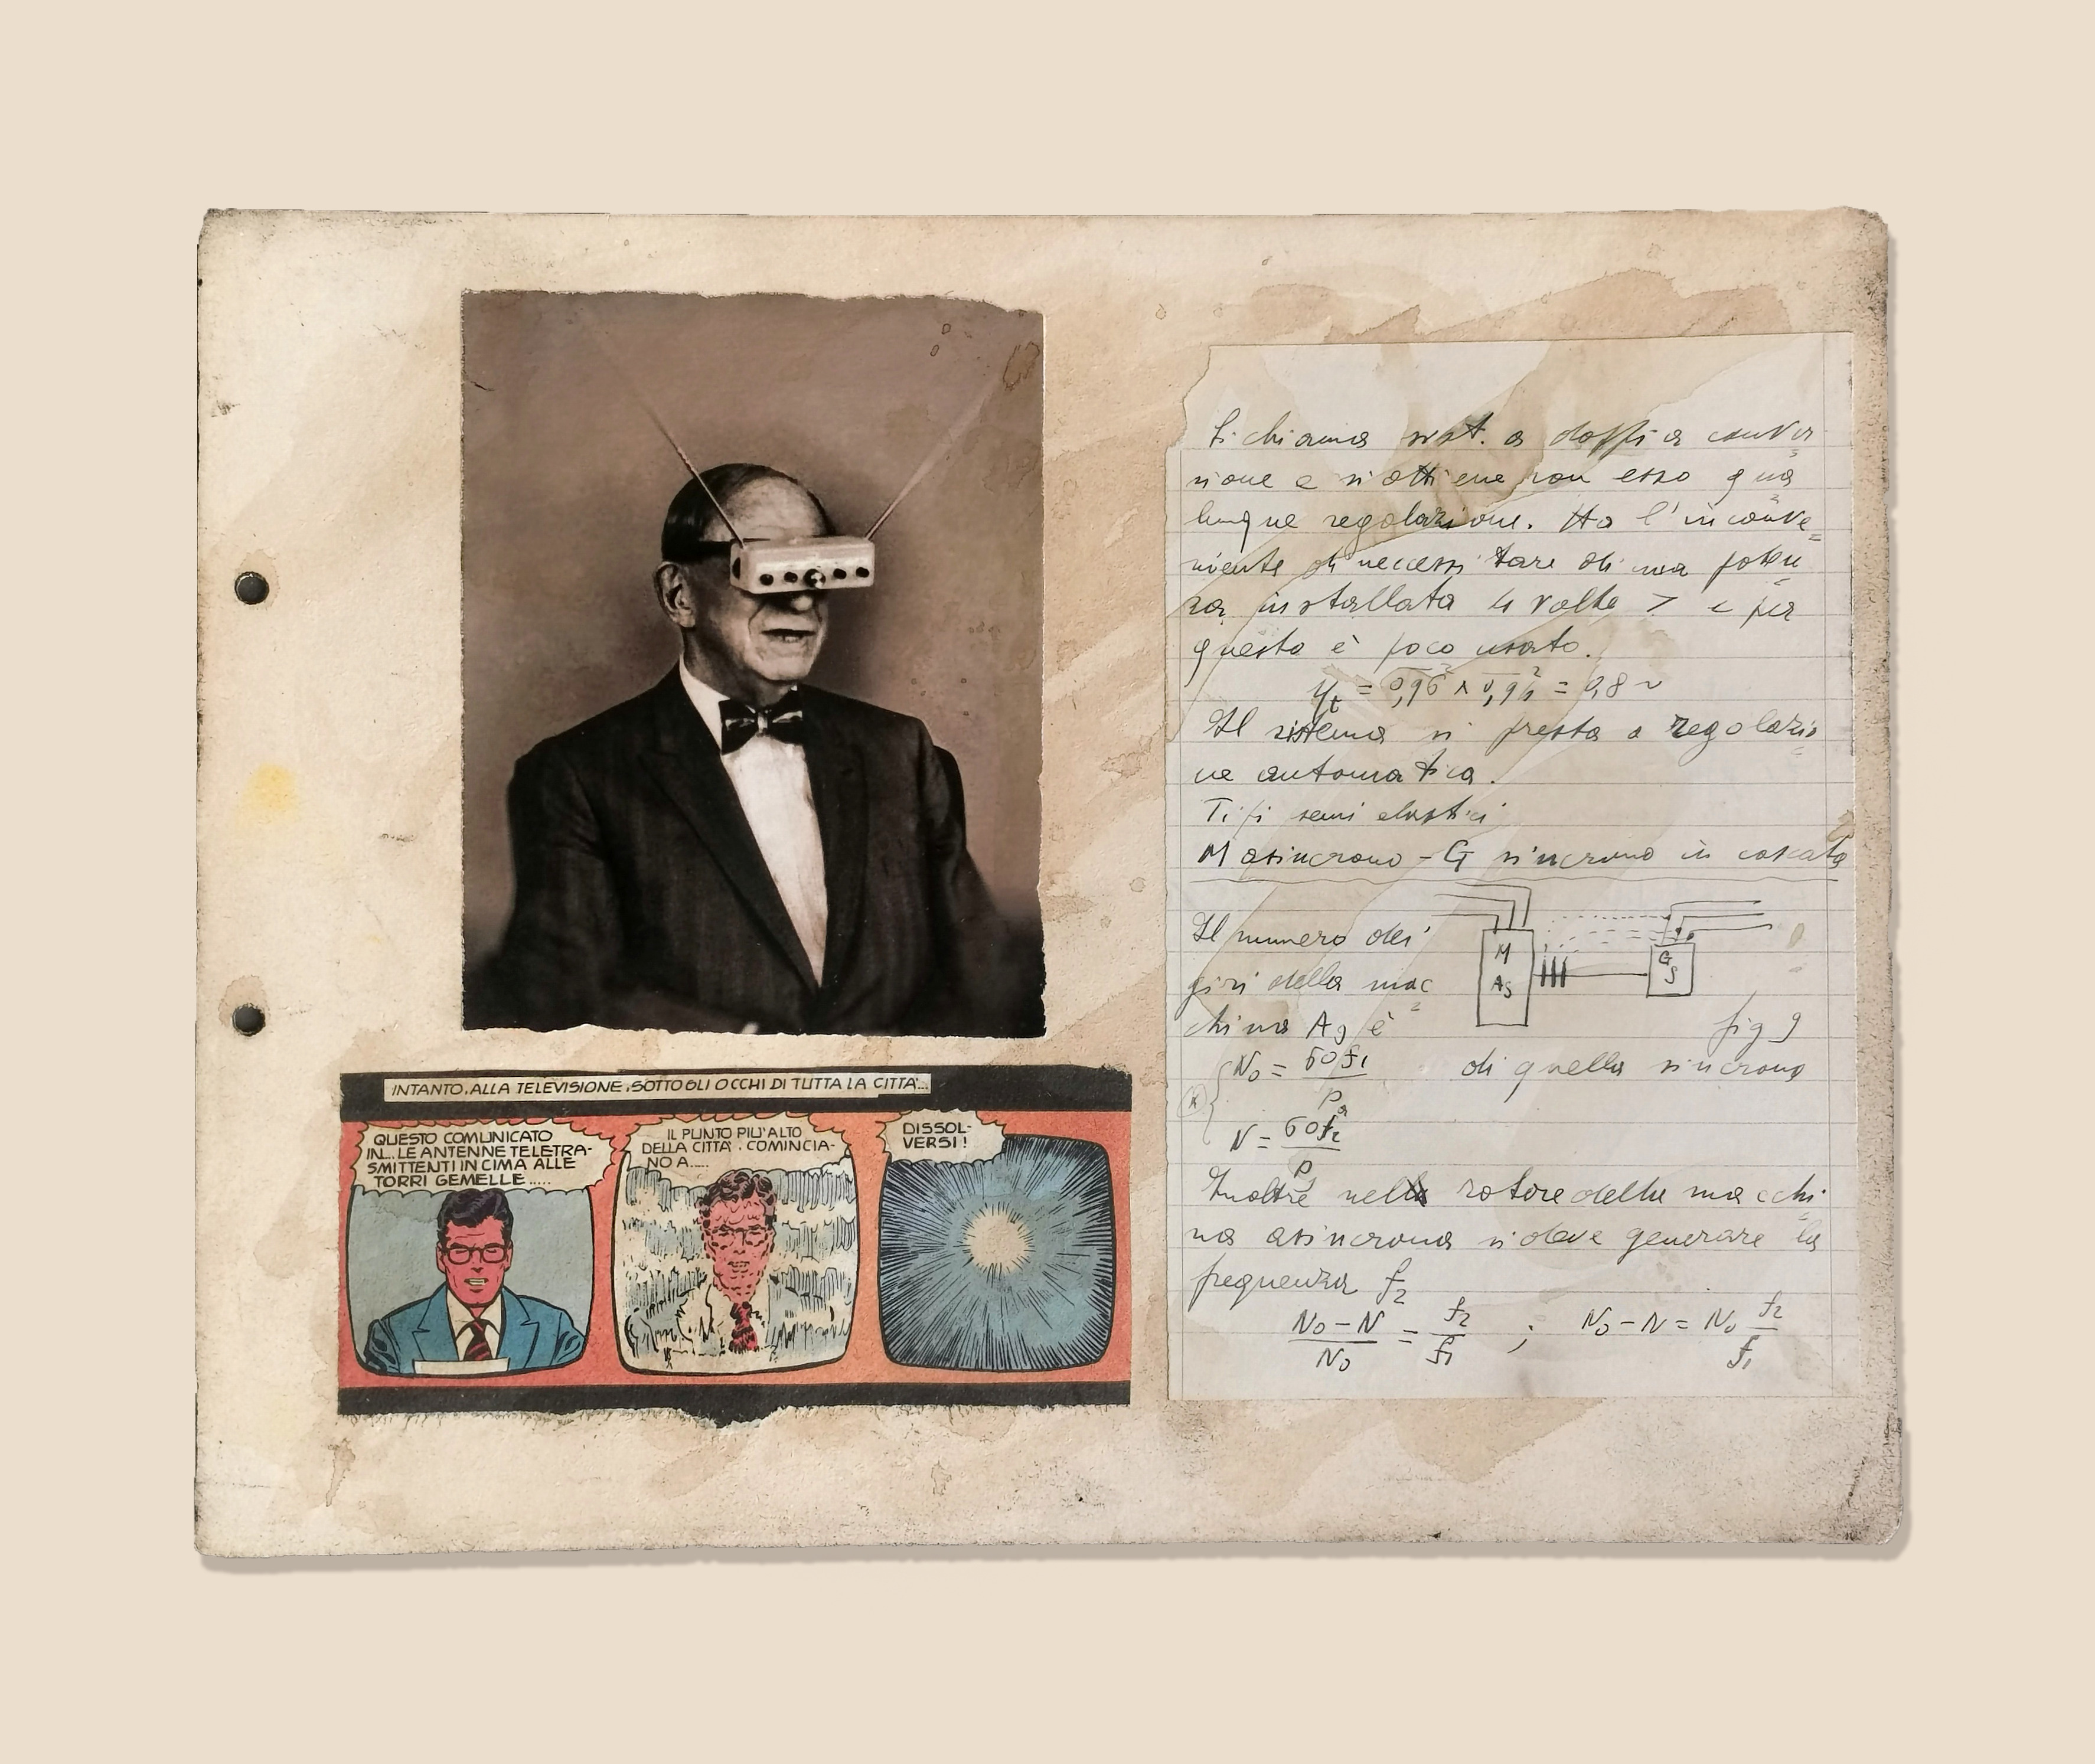 INTANTO, ALLA TELEVISIONE, SOTTO GLI OCCHI DI TUTTA LA CITTA'...
QUESTO COMUNICATO
IN... LE ANTENNE TELETRA-
SMITTENTI IN CIMA ALLE
TORRI GEMELLE .....
IL PUNTO PIU' ALTO
DELLA CITTA'. COMINCIA-
NO A.....
DISSOL-
VERSI!
Si chiama sist. a doppia conver
sione e si ottiene con esso qua
lunque regolazione. Ha l'inconve
niente di neccessitare di una poten
za installata 4 volte > e per
questo è poco usato.
Il sistema si presta a regolazio
ne automatica.
Tipi semi elastici
M asincrono - G sincrono in cascata
Il numero dei
giri della mac
china As è
M
AS
G
S
fig 9
N₀ = 60f₁ / Pa di quella sincrona
N = 60f₂ / Ps
Inoltre nel rotore della macchi
na asincrona si deve generare la
frequenza f₂
N₀ - N / N₀ = f₂ / f₁ ; N₀ - N = N₀ f₂ / f₁